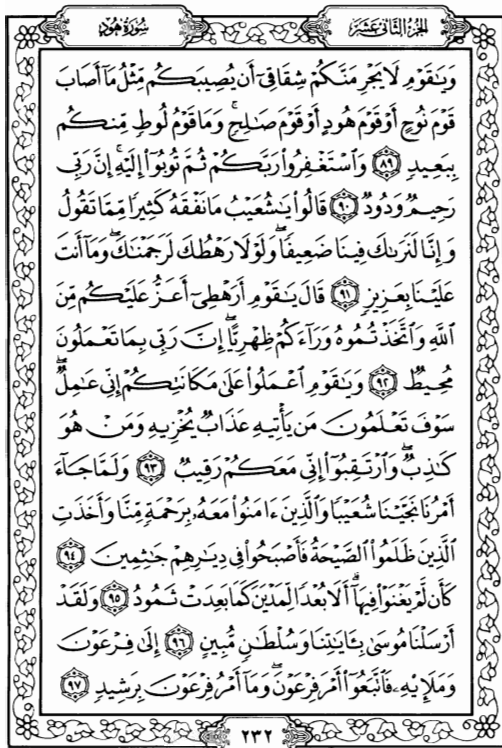 الجزء الثاني عشر
سورة هود
وَيَٰقَوْمِ لَا يَجْرِمَنَّكُمْ شِقَاقِىٓ أَن يُصِيبَكُم مِّثْلُ مَآ أَصَابَ
قَوْمَ نُوحٍ أَوْ قَوْمَ هُودٍ أَوْ قَوْمَ صَٰلِحٍۚ وَمَا قَوْمُ لُوطٍ مِّنكُم
بِبَعِيدٍ ٨٩ وَٱسْتَغْفِرُوا۟ رَبَّكُمْ ثُمَّ تُوبُوٓا۟ إِلَيْهِۚ إِنَّ رَبِّى
رَحِيمٌ وَدُودٌ ٩٠ قَالُوا۟ يَٰشُعَيْبُ مَا نَفْقَهُ كَثِيرًا مِّمَّا تَقُولُ
وَإِنَّا لَنَرَىٰكَ فِينَا ضَعِيفًاۖ وَلَوْلَا رَهْطُكَ لَرَجَمْنَٰكَۖ وَمَآ أَنتَ
عَلَيْنَا بِعَزِيزٍ ٩١ قَالَ يَٰقَوْمِ أَرَهْطِىٓ أَعَزُّ عَلَيْكُم مِّنَ
ٱللَّهِ وَٱتَّخَذْتُمُوهُ وَرَآءَكُمْ ظِهْرِيًّاۖ إِنَّ رَبِّى بِمَا تَعْمَلُونَ
مُحِيطٌ ٩٢ وَيَٰقَوْمِ ٱعْمَلُوا۟ عَلَىٰ مَكَانَتِكُمْ إِنِّى عَٰمِلٌۖ
سَوْفَ تَعْلَمُونَ مَن يَأْتِيهِ عَذَابٌ يُخْزِيهِ وَمَنْ هُوَ
كَٰذِبٌۖ وَٱرْتَقِبُوٓا۟ إِنِّى مَعَكُمْ رَقِيبٌ ٩٣ وَلَمَّا جَآءَ
أَمْرُنَا نَجَّيْنَا شُعَيْبًا وَٱلَّذِينَ ءَامَنُوا۟ مَعَهُۥ بِرَحْمَةٍ مِّنَّا وَأَخَذَتِ
ٱلَّذِينَ ظَلَمُوا۟ ٱلصَّيْحَةُ فَأَصْبَحُوا۟ فِى دِيَٰرِهِمْ جَٰثِمِينَ ٩٤
كَأَن لَّمْ يَغْنَوْا۟ فِيهَآۗ أَلَا بُعْدًا لِّمَدْيَنَ كَمَا بَعِدَتْ ثَمُودُ ٩٥ وَلَقَدْ
أَرْسَلْنَا مُوسَىٰ بِـَٔايَٰتِنَا وَسُلْطَٰنٍ مُّبِينٍ ٩٦ إِلَىٰ فِرْعَوْنَ
وَمَلَإِي۟هِۦ فَٱتَّبَعُوٓا۟ أَمْرَ فِرْعَوْنَۖ وَمَآ أَمْرُ فِرْعَوْنَ بِرَشِيدٍ ٩٧
٢٣٢